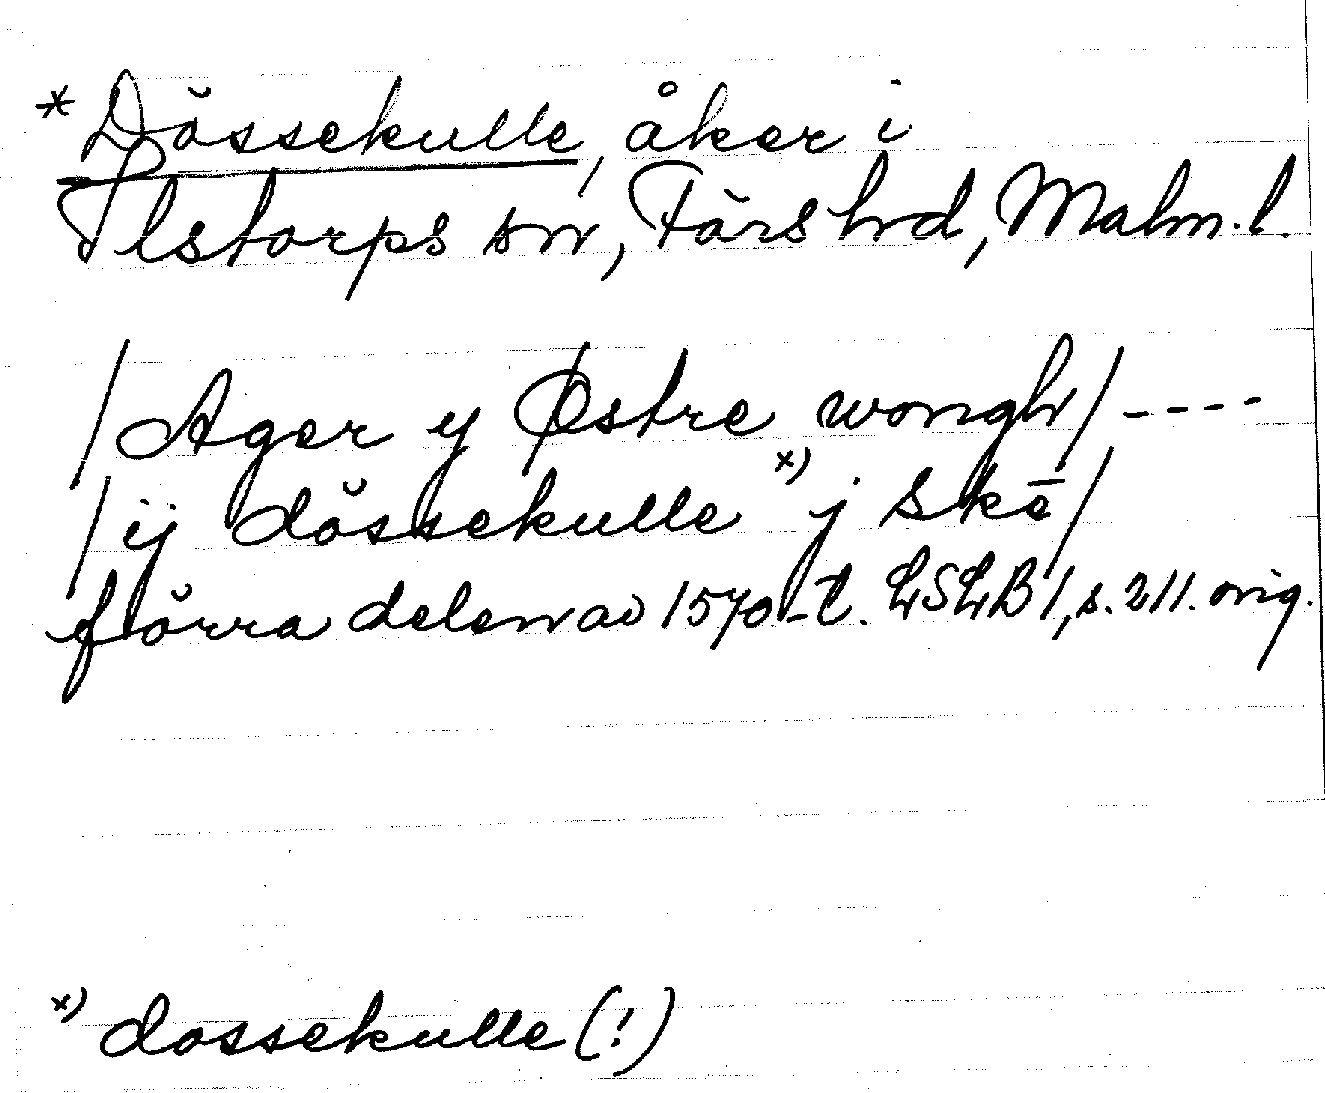 *Dössekulle, åker i
Ilstorps sn, Färs hd, Malm. l.
/Ager y Østre wongh/----
/ij dössekulle x) j Skē/
förra delen av 1570-t. LSLB 1, s. 211. orig.
x) dossekulle (!)